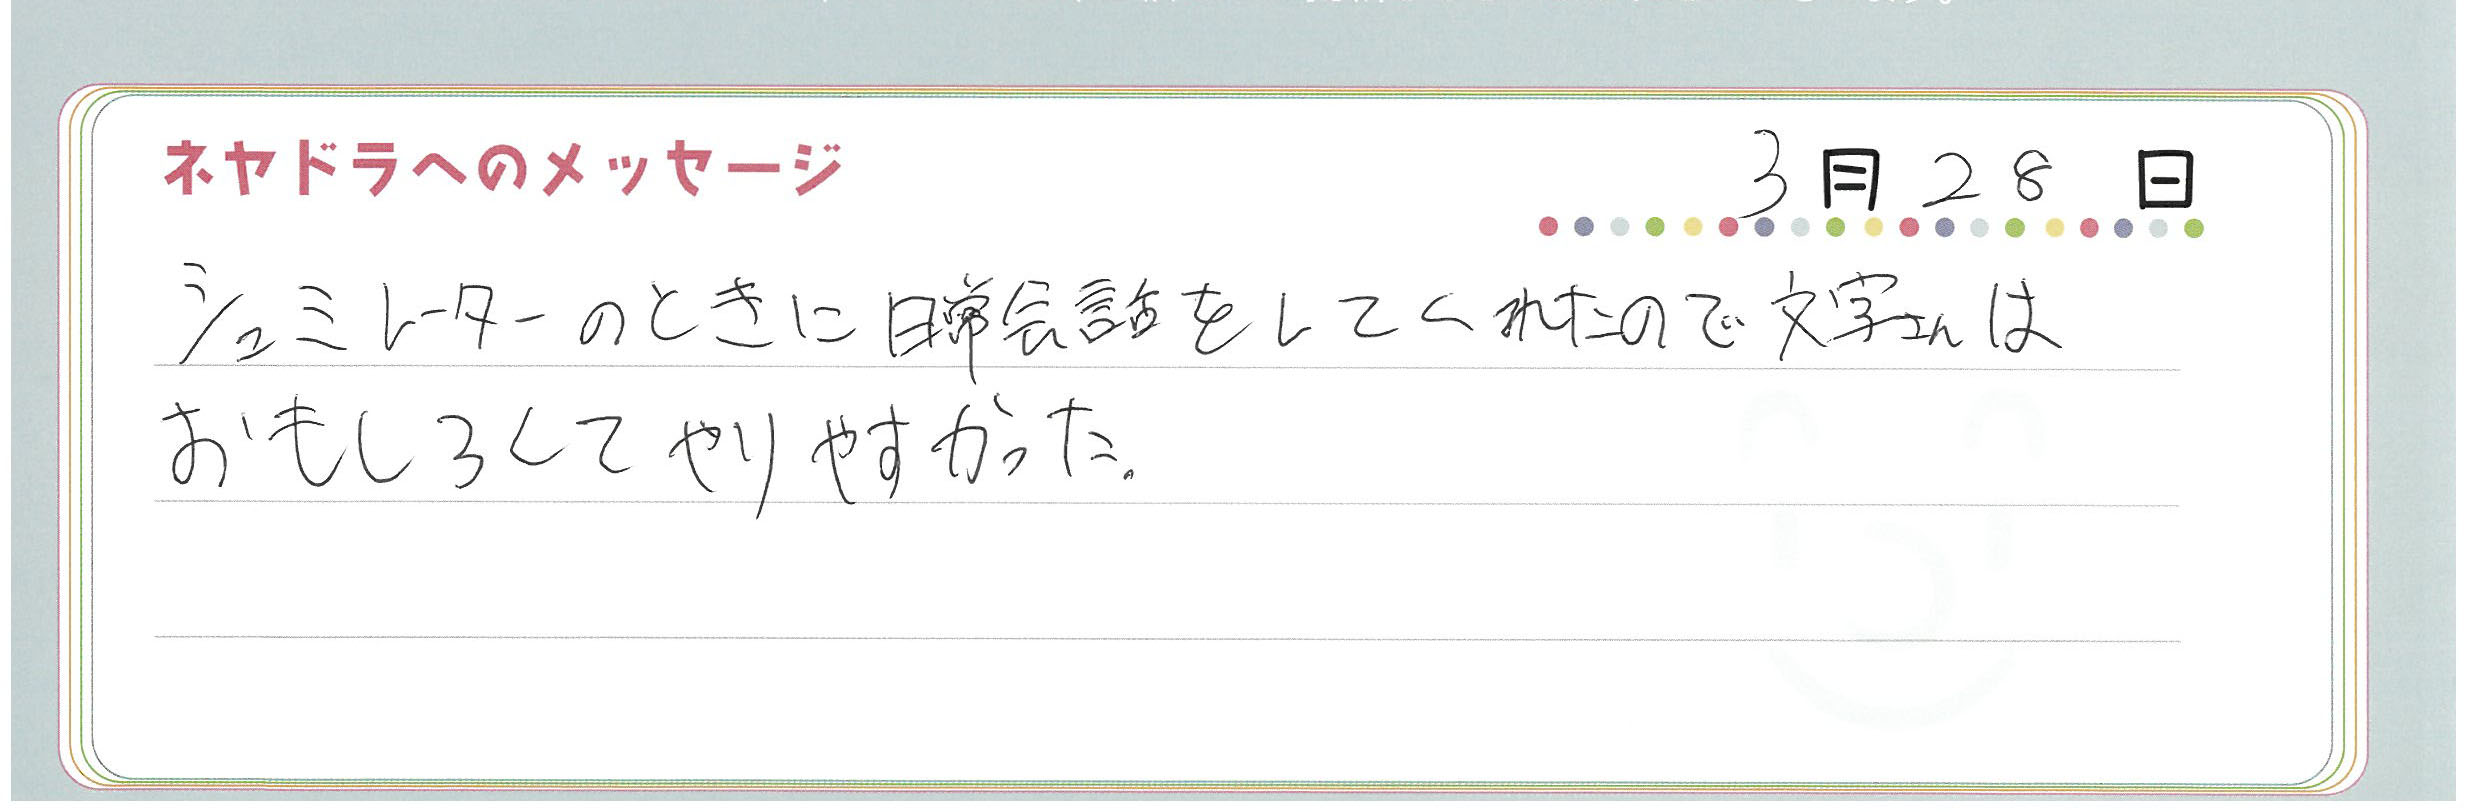 ネヤドラへのメッセージ
3月28日
シュミレーターのときに日常会話をしてくれたので文字さんは
おもしろくてやりやすかった。